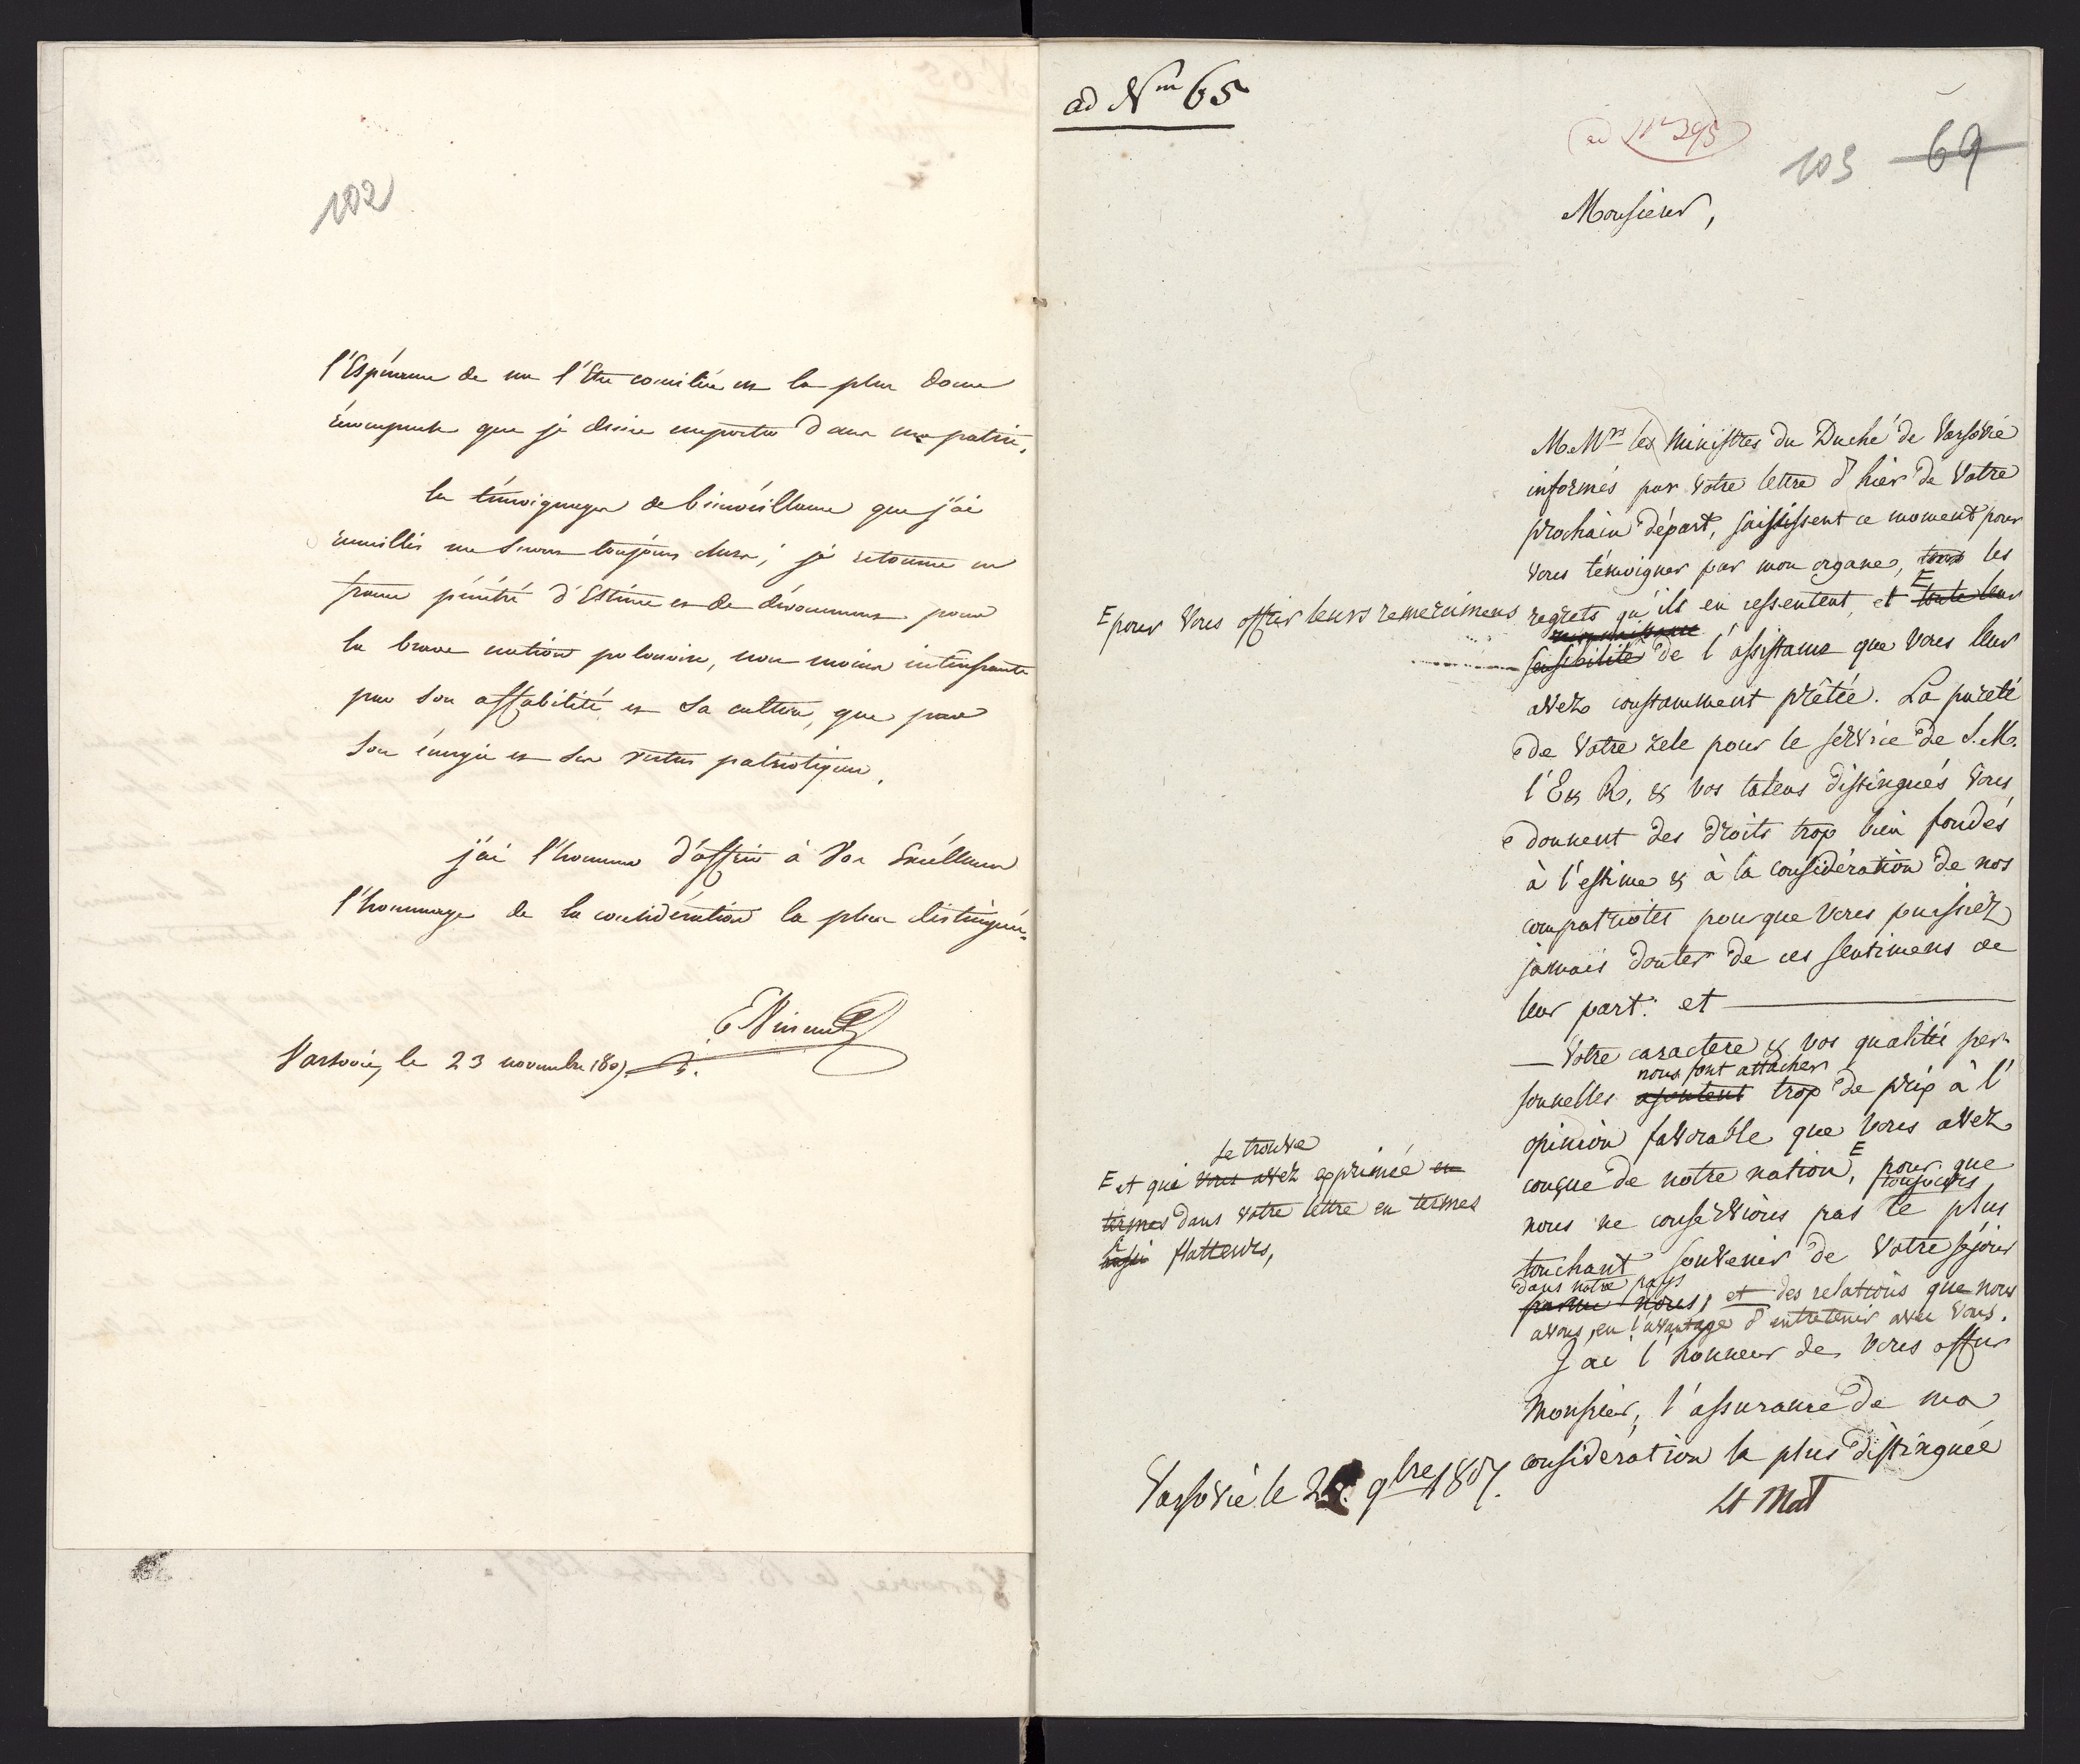 102
l'Espérance de me l'Etre conciliée est la plus douce
récompense que je désire emporter dans ma patrie.
les témoignages de bienveillance que j'ai
recueillis me seront toujours chers; je retourne en
france pénétré d'Estime et de dévouement pour
la brave nation polonaise, non moins intéressante
par son affabilité et sa culture, que par
son énergie et ses vertus patriotiques.
j'ai l'honneur d'offrir à Son Excellence
l'hommage de la considération la plus distinguée.
E Vincent
Varsovie, le 23 novembre 1807
ad Nm 65
ad Nr 295
103 69
Monsieur,
M. Mrs les Ministres du Duché de Varsovie
informés par votre lettre d'hier de votre
prochain départ, saisissent ce moment pour
vous témoigner par mon organe, tous les
E pour vous offrir leurs remercimens
regrets qu'ils en ressentent, et E toute leur
reconnaissance
sensibilité de l'assistance que vous leur
avez constamment prêtée. La pureté
de votre zele pour le service de S. M.
l'E & R, & vos talens distingués vous
donnent des droits trop bien fondés
à l'estime & à la considération de nos
compatriotes pour que vous puissiez
jamais douter de ces sentimens de
leur part: et
— Votre caractere & vos qualités per-
nous font attacher
sonnelles ajoutent trop de prix à l'
opinion favorable que vous avez
conçue de notre nation, E pour que
toujours
nous ne conservions pas le plus
touchant souvenir de votre séjour
dans notre pays
parmi nous, et des relations que nous
avons eu l'avantage d'entretenir avec vous.
se trouve
E et qui vous avez exprimée en
termes dans votre lettre en termes
aussi flatteurs,
J'ai l'honneur de vous offrir
Monsieur, l'assurance de ma
considération la plus distinguée
Varsovie le 24. 9bre 1807.
St Mał